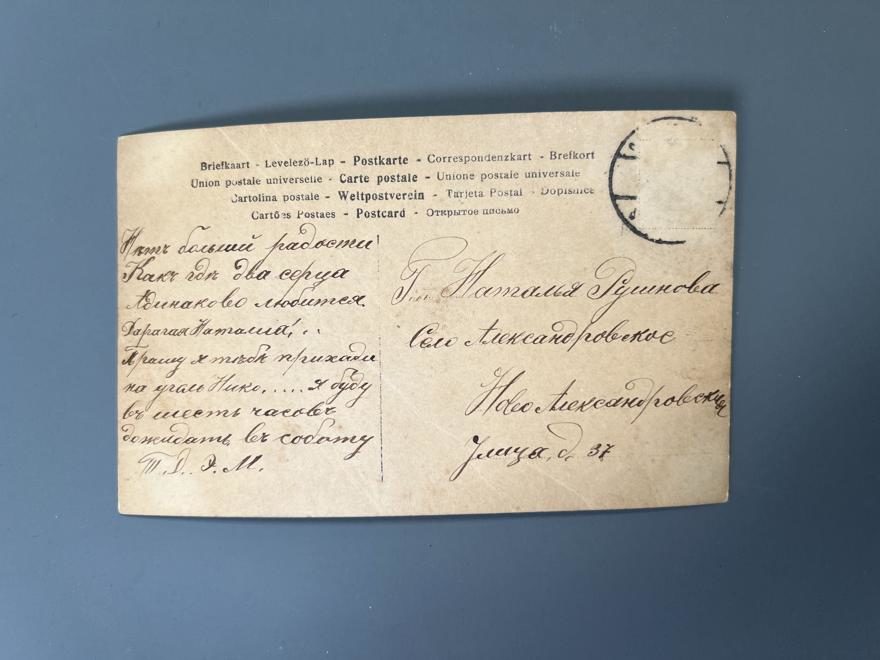 Briefkaart - Levelezö-Lap - Postkarte - Correspondenzkart - Brefkort
Union postale universelle - Carte postale - Unione postale universale
Cartolina postale - Weltpostverein - Tarjeta Postal - Dopisnice
Cartões Postaes - Postcard - Открытое письмо
Нѣтъ большій радости
Какъ гдѣ два серца
Адинаково любится.
Дарагая Наташа!...
Прашу я тѣбѣ прихади
на уголъ Нико..... я буду
въ шесть часовъ
дожидать въ соботу
Т. Д. Э. М.
Г... Наталья Рушнова
Село Александровское
Ново Александровская
Улица, д. 37